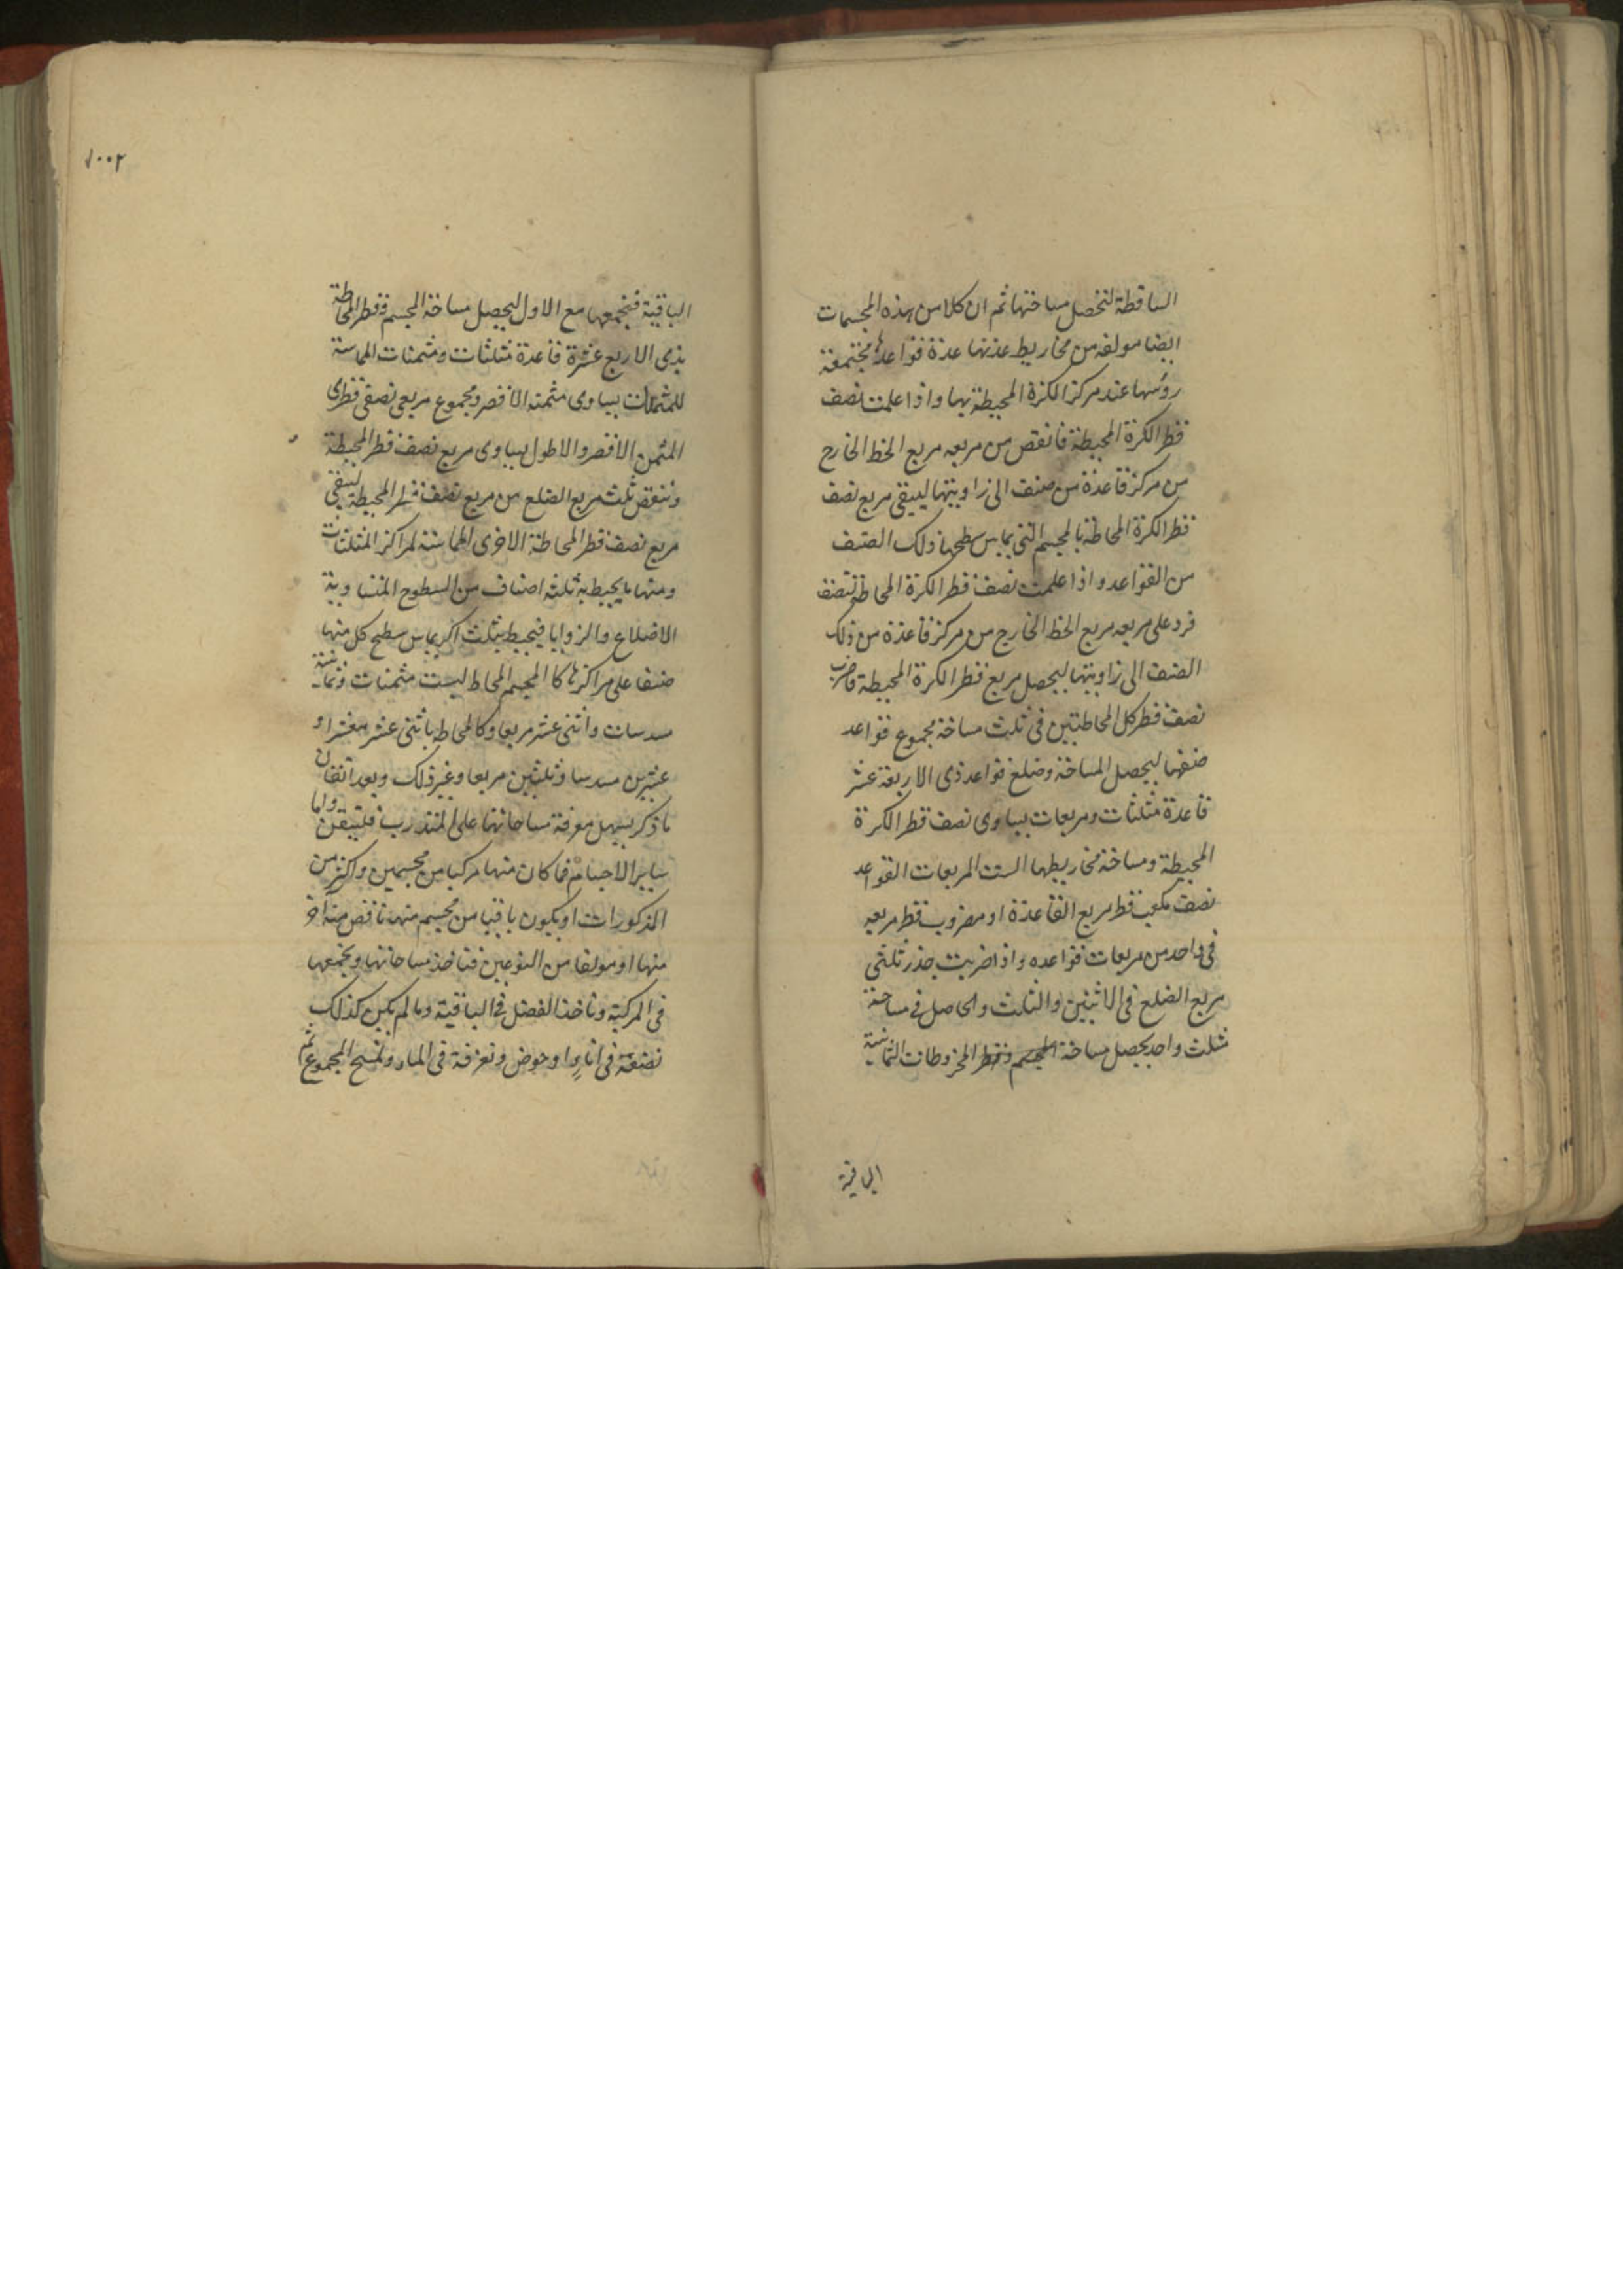 الساقطة لتحصل مساحتها ثم ان كلا من هذه المجسمات
ايضا مولفه من مخاريط عدتها عدة قواعدها مجتمعة
رؤسها عند مركز الكرة المحيطة بها واذا علمت نصف
قطر الكرة المحيطة فانقص من مربعه مربع الخط الخارج
من مركز قاعدة من صنف الى زاويتها ليبقى مربع نصف
قطر الكرة المحاطة بالمجسم التى يماس سطحها ذلك الصنف
من القواعد واذا علمت نصف قطر الكرة المحاطة لصنف
فزد على مربعه مربع الخط الخارج من مركز قاعدة من ذلك
الصنف الى زاويتها ليحصل مربع قطر الكرة المحيطة فاضرب
نصف قطر كل المحاطتين فى ثلث مساحة مجموع قواعد
صنفها ليحصل المساحة وضلع قواعد ذى الاربعة عشر
قاعدة مثلثات ومربعات يساوى نصف قطر الكرة
المحيطة ومساحة مخاريطها الست المربعات القواعد
نصف مكعب قطر مربع القاعدة او مضروب قطر مربعه
فى واحد من مربعات قواعده واذا ضربت جذر ثلثى
مربع الضلع فى الاثنين والثلث والحاصل فى مساحة
مثلث واحد يحصل مساحة المجسم فقط المخروطات الثمانية
الباقية
١٠٠٢
الباقية فنجمعها مع الاول ليحصل مساحة المجسم وقطر المحاطة
بذى الاربع عشرة قاعدة مثلثات ومثمنات المماسة
للمثمنات يساوى مثمنه الاقصر ومجموع مربعى نصفى قطرى
المثمن الاقصر والاطول يساوى مربع نصف قطر المحيطة
وننقص ثلث مربع الضلع من مربع نصف قطر المحيطة ليبقى
مربع نصف قطر المحاطة الاخرى المماسة لمراكز المثلثات
ومنها ما يحيط به ثلثه اصناف من السطوح المتساوية
الاضلاع والزوايا فيحيط بثلث اكر يماس سطح كل منها
صنفا على مراكزها كالمجسم المحاط لست مثمنات وثمانية
مسدسات واثنى عشر مربعا وكالمحاط باثنى عشر معشرا و
عشرين مسدسا وثلثين مربعا وغير ذلك وبعد اتقان
ما ذكر يسهل معرفة مساحاتها على المتدرب فليتيقن واما
سائر الاجسام فما كان منها مركبا من مجسمين واكثر من
المذكورات او يكون باقيا من مجسم منها ناقص منه اخر
منها او مولفا من النوعين فناخذ مساحاتها ونجمعها
فى المركبة وناخذ الفضل فى الباقية وما لم يكن كذلك
نضعه فى اناء او حوض ونغرقه فى الماء ونمسح المجموع ثم